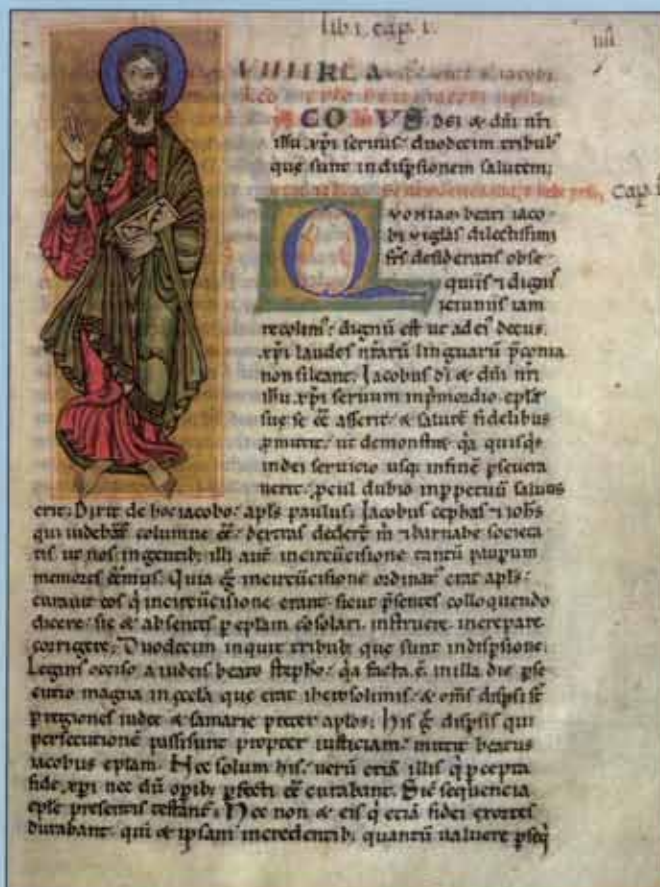 lib. i. cap. i.
iiii
VIIII KL A
COBVS dei & dñi nr̃i
ihu. xp̃i seruus. duodecim tribub;
que sunt in dispsionem salutem;
Cap. i
Quoniam beati iaco
bi uigiłas dilectissimi
fr̃s desideratis obse
quiis ⁊ dignis
ieiuniis iam
recolim̃: dignũ est ut ad ei decus.
xp̃i laudes nr̃arũ linguarũ p̃conia
non sileant. Iacobus d̃i & dñi nr̃i
ihu. xp̃i seruum in p̃mordio ep̃le
sue se ẽe asserit. & salutẽ fidelibus
p̃mittit. ut demonst̃t q̃a quisq̃s
in dei seruicio usq; in finẽ p̃seuera
uerit. p̃cul dubio in p̃petuũ saluus
erit. Dixit de hoc iacobo. ap̃ls paulus. Iacobus cephas ⁊ ioh̃s
qui uidebãt columne ẽe. dextras dedert̃ m̃ ⁊ barnabe societa
tis ut nos in gentib; illi aut̃ in circũcisione tantũ paupum
memores ẽemus. Quia g̃ in circũcisione ordinat̃ erat ap̃ls.
curauit eos q̃ in circũcisione erant. sicut p̃sentes colloquendo
dicere. sic & absentes p ep̃lam c̃osolari. instruere. increpare.
corrigere. Duodecim inquit tribub; que sunt in dispsione.
Legim̃ occiso a iudeis beato steph̃o. q̃a facta. ẽ. in illa die p̃se
cutio magna in ecc̃la que erat iherosolimis. & om̃s disp̃si st̃
p regiones iudee & samarie preter ap̃los. His g̃ disp̃sis qui
persecutionẽ passi sunt propter iusticiam. mittit beatus
iacobus ep̃lam. Nec solum his. uerũ etiã illis q̃ p̃cepta
fide. xp̃i nec dũ opib; p̃fecti ẽe curabant. Sic̃ sequencia
ep̃le presentis testant̃. Nec non & eis q̃ etiã fidei exortes
durabant. qui & ipsam in credentib; quantũ ualuere p̃seq̃